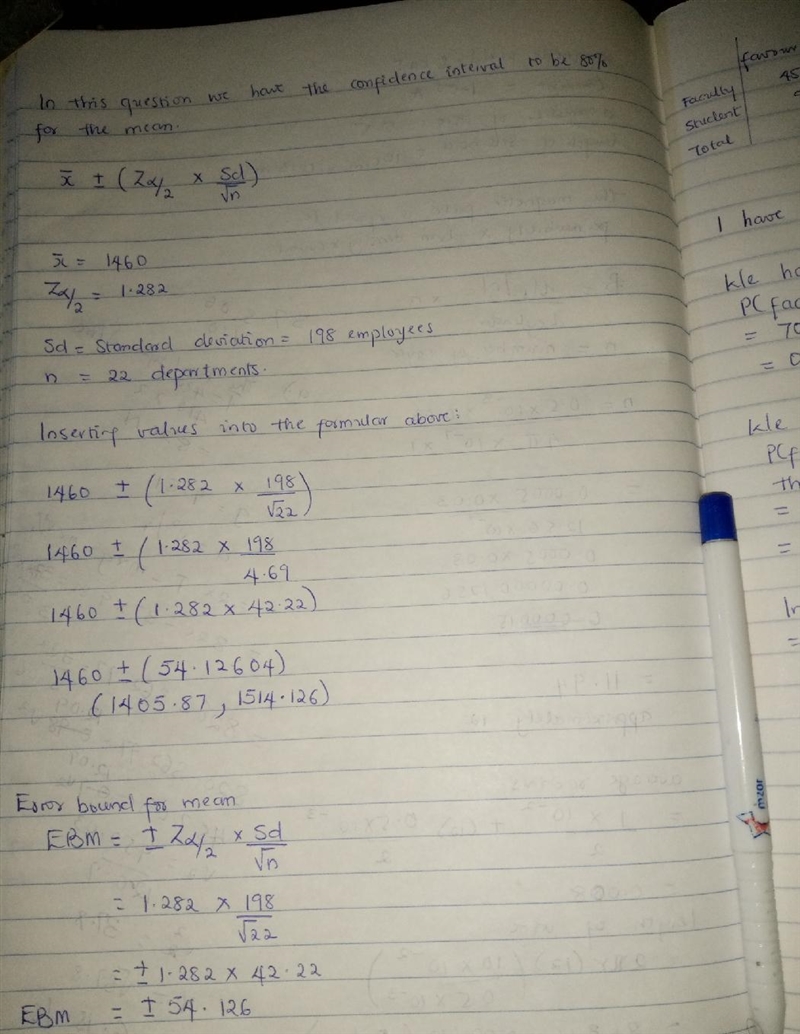 In this question we have the confidence interval to be 80%
for the mean.
x̄ ± (Zα/2 × Sd/√n)
x̄ = 1460
Zα/2 = 1.282
Sd = Standard deviation = 198 employees
n = 22 departments.
Inserting values into the formular above:
1460 ± (1.282 × 198/√22)
1460 ± (1.282 × 198/4.69
1460 ± (1.282 × 42.22)
1460 ± (54.12604)
(1405.87, 1514.126)
Error bound for mean
EBM = ± Zα/2 × Sd/√n
= 1.282 × 198/√22
= ± 1.282 × 42.22
EBM = ± 54.126
favour
Faculty 45
Student
Total
I have
kle ha
PC fac
= 70
= 0
kle
PCf
th
=
=
In
=
mzor